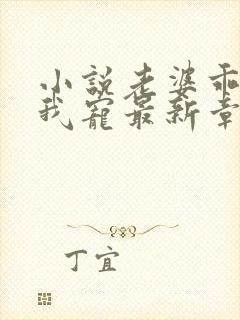 小說老婆乖
我寵最新章
丁宜